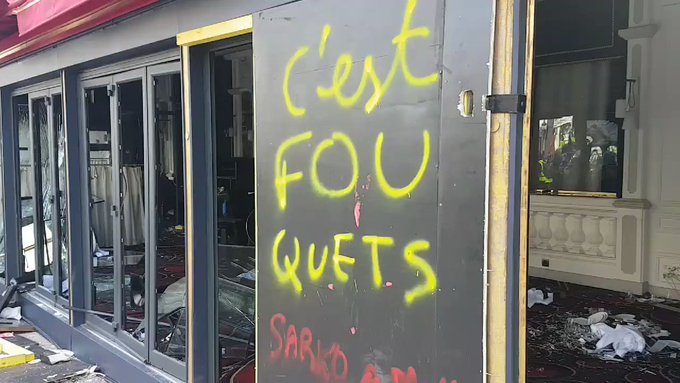 c'est
FOU
QUETs
SARKO